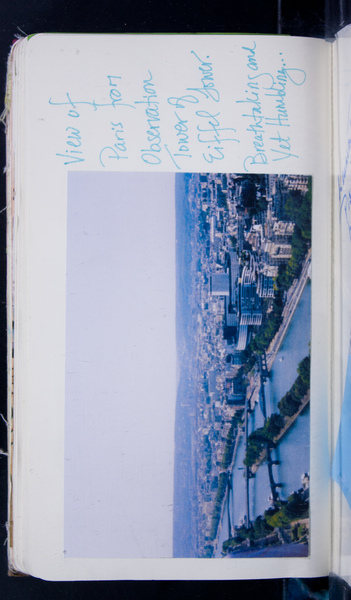 View of
Paris from
Observation
Tower of
Eiffel Tower.
Breathtaking and
Yet Humbling...